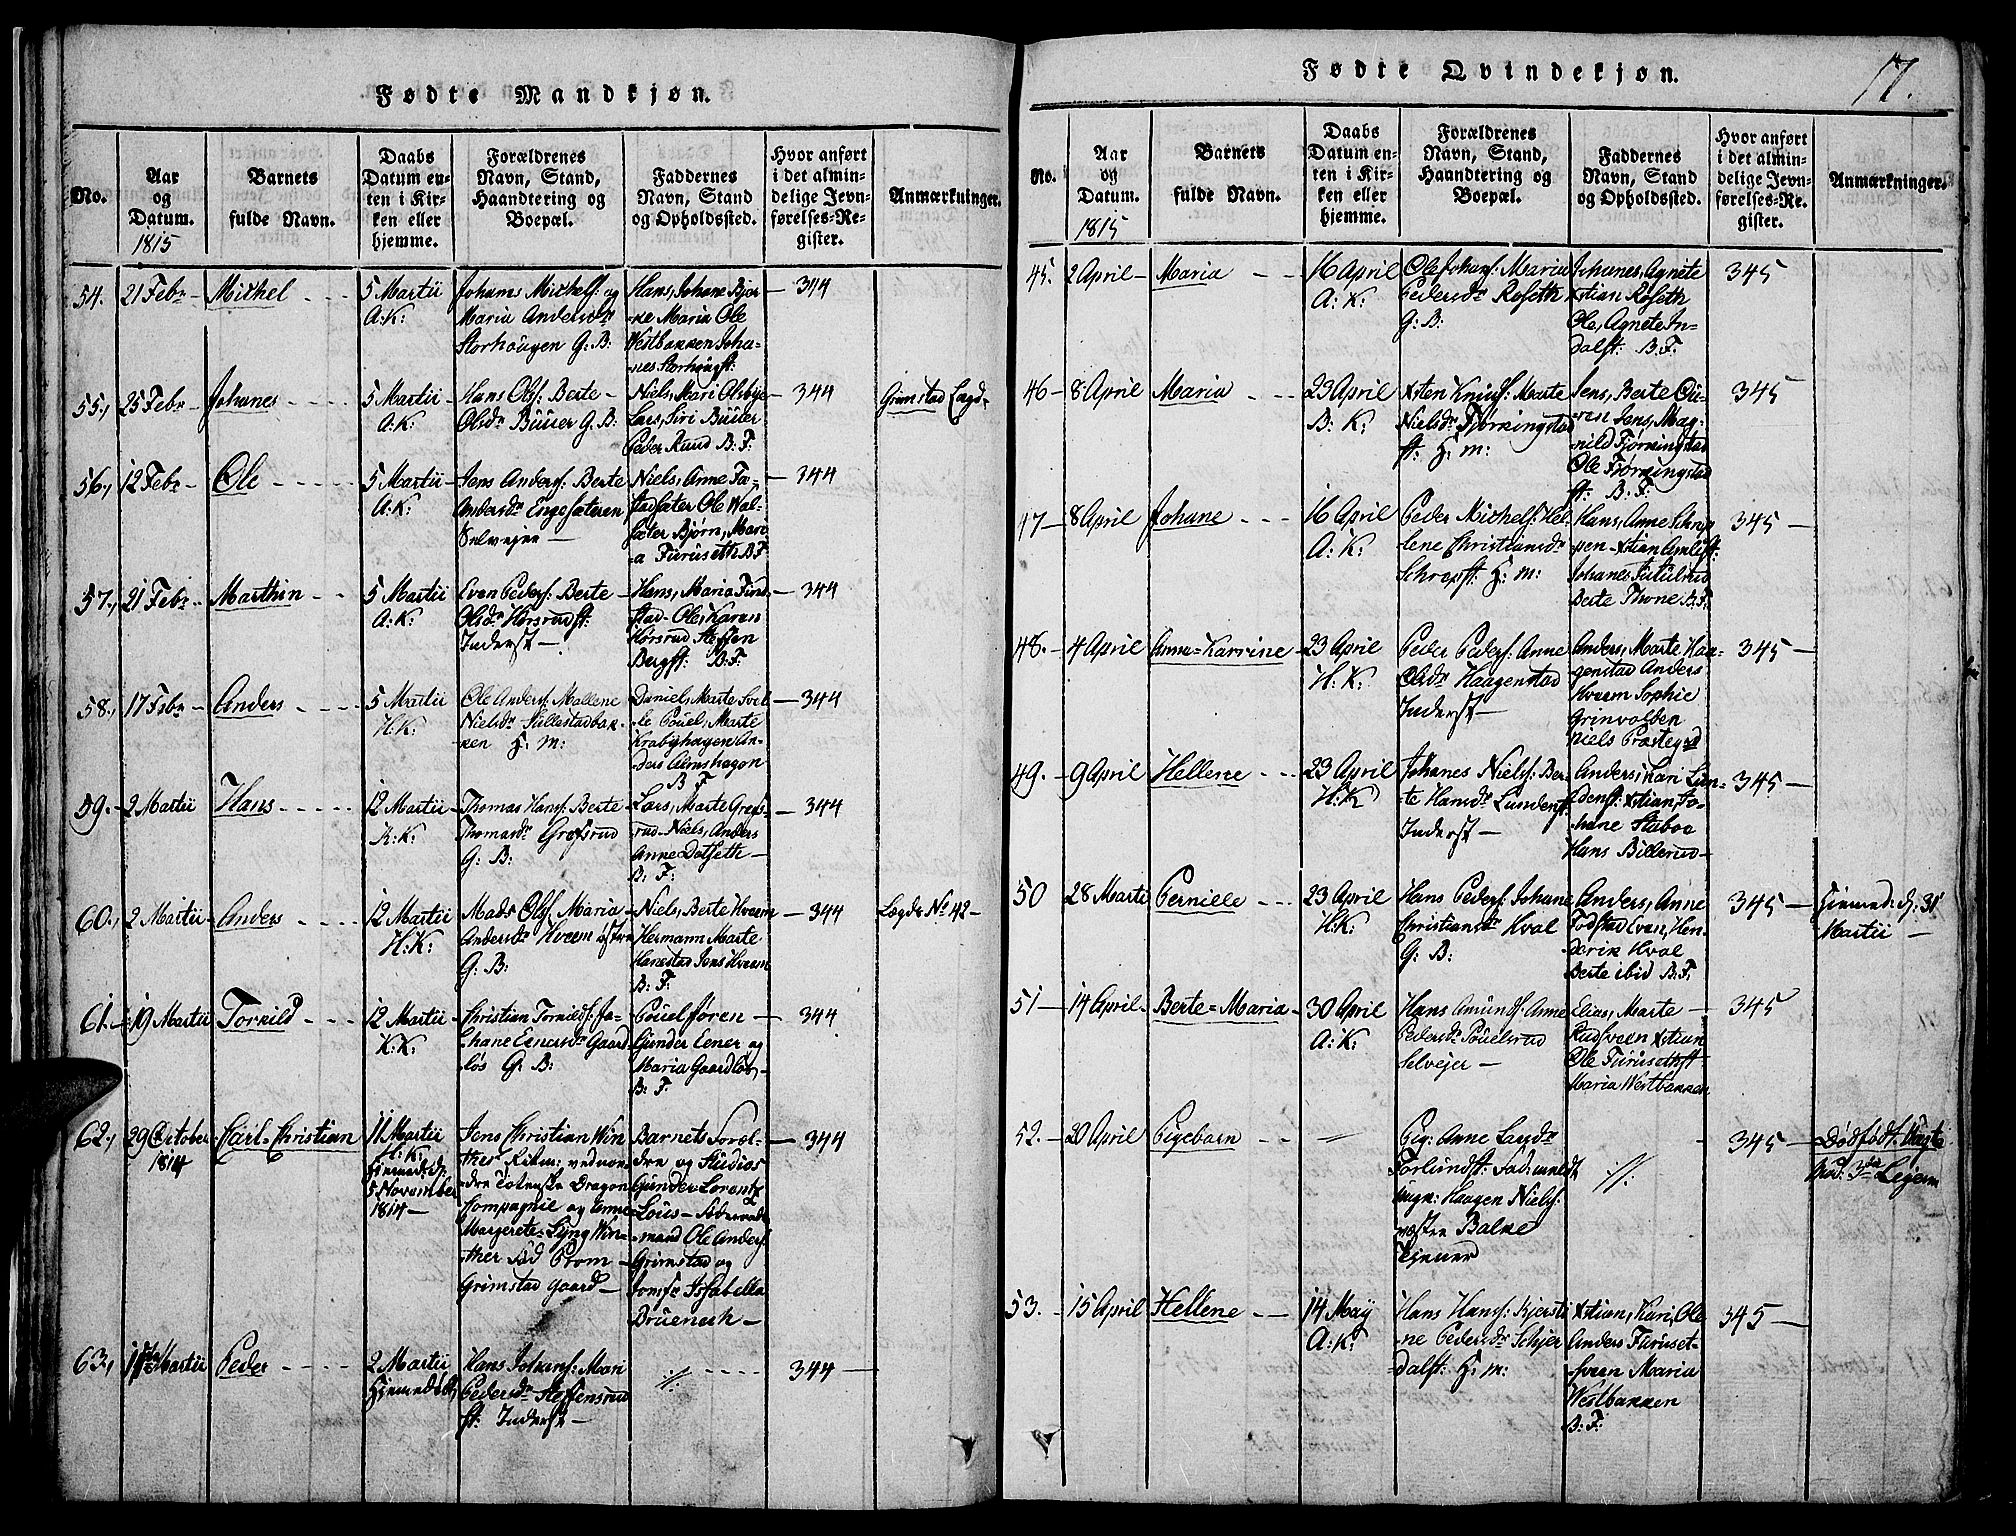 Fødte Mandkjøn.
No.
Aar
og
Datum.
1815
Barnets
fulde Navn.
Daabs
Datum en-
ten i Kir-
ken eller
hjemme.
Forældrenes
Navn, Stand,
Haandtering og
Boepæl.
Faddernes
Navn, Stand
og Opholdssted.
Hvor anført
i det almin-
delige Jevn-
førelses-Re-
gister.
Anmærkninger.
54. 21 Febr Michel 5 Martii A.K: 344
Johanns Michels: og
Maria Andersdr
Storhaugen G. B:
Hans, Johane Bjer
ke Maria Ole
Westbakken Joha-
nes Storhaugst:
55., 25 Febr Johanes 5 Martii A:K: 344
Hans Ols: Berte
Olsdr Büüer G. B:
Niels, Mari Olsbye
Lars, Siri Büüer
Peder Rund B. F.
Grimstad Lægd
56., 12 Febr Ole 5 Martii A.K: 344
Jens Anders: Berte
Andersdr Engesæteren
Selvejer
Niels, Anne Fa-
stadsæter Ole Wal-
sæter Bjørn, Mari-
a Furuseth B F
57., 21 Febr Marthin 5 Martii A:K: 344
Even Peders: Berte
Olsdr Hørsrudst:
Inderst
Hans, Maria Find-
stad Ole, Karen
Hørsrud Steffen
Bergst: B. F.
58., 17 Febr Anders 5 Martii H:K: 344
Ole Anders: Mallene
Nielsdr Sillestadbak-
ken H. m:
Daniel, Marte Svel-
le Pouel, Marte
Krabyhagen An-
ders Almshagen
B F
59. 2 Martii Hans 12 Martii A:K: 344
Thomas Hans: Berte
Thomasdr Grefsrud
G. B:
Lars, Marte Grefs-
rud Niels, Anders
Anne Dotseth
B. F.
60., 2 Martii Anders 12 Martii H:K: 344
Mads Ols: Maria
Andersdr Hveem østre
G: B:
Niels, Berte Hveem
Hermann Marte
Hanestad Jens Hveem
B. F.
Lægds No 42
61. 19 Martii Torkild 12 Martii K:K: 344
Christian Torkilds: Jo-
hane Enersdr Gaard-
løs G. B:
Pouel Soren
Gunder Ener og
Maria Gaardløs
B. F.
62., 29 October 1814 Carl-Christian 344
11 Martii
H:K:
Hjemmedøbt
5 November
1814
Jens Christian Win-
ther Ritm: ved nor-
dre Totenske Dragon
Compagnie og Anne
Margrete Lyng Win-
ther paa Prom-
Grimstad Gaard
Barnets Foræl-
dre og Studios
Gunder Lorentz
Lous
mand Ole Anders:
Grimstad og
Jomfr Isabella
Bruenech
63., Martii Peder 2 Martii Hjemmedøbt 344
Hans Johans: Mari
Pedersdr Steffensrud
st: Inderst
Fødte Qvindekjøn.
17.
No.
Aar
og
Datum.
1815
Barnets
fulde Navn.
Daabs
Datum en-
ten i Kir-
ken eller
hjemme.
Forældrenes
Navn, Stand,
Haandtering og
Boepæl.
Faddernes
Navn, Stand
og Opholdssted.
Hvor anført
i det almin-
delige Jevn-
førelses-Re-
gister.
Anmærkninger.
45. 2 April Maria 16 April A: K: 345
Ole Johans: Maria
Pedersdr Roseth
G: B:
Johanes, Agnete
Xstian Roseth
Ole, Agnete In-
dalst: B. F.
46 8 April Maria 23 April B: K: 345
Xsten Knuds: Marte
Nielsdr Fjørkingstad
st: H. m:
Jens, Berte Qu-
ren Jens, Mag-
nild Fjørkingstad
Ole Fjørkingstad
st: B. F:
47 8 April Johane 16 April A: K: 345
Peder Michels: Hel-
lene Christiansdr
Schrepst: H: m:
Hans, Anne Schrep-
pen Xstian Amlist:
Johanes Tutulrud
Berte Thone B. F.
48. 4 April Anne-Karrine 23 April H: K: 345
Peder Peders: Anne
Olsdr Haagenstad
Inderst
Anders, Marte Haa-
genstad Anders
Hveem Sophie
Grinvolden
Niels Præstegd
49. 9 April Hellene 23 April H:K 345
Johanes Niels: Ber-
te Hansdr Lundenst.
Inderst
Anders, Kari Lun-
denst: Xstian, Jo-
hane Staboe
Hans Billerud
50 28 Marti Pernille 23 April H:K: 345
Hans Peders: Johane
Christiansdr Hval
G: B:
Anders, Anne
Fodstad Even, Hen-
derik Hval
Berte ibid B. F.
Hjemmed: d: 31
Martii
51 14 April Berte-Maria 30 April A: K: 345
Hans Amunds: Anne
Pedersdr Pouelsrud
Selvejer
Elias, Marte
Rudsveen Xstian
Ole Furusethst
Maria Westbakken
52. 20 April Pigebarn 345
Pig: Anne Larsdr
Forlundst: Fad:
Ungk: Haagen Niels:
vestre Balke
tjener
Dødfødt. Uægte
Mod: 3die Lejerm
53. 15 April Hellene 14 May A: K: 345
Hans Hans: Kjersti
ne Pedersdr Schjer
dalst: H: m:
Xstian, Kari, Ole
Anders Furuset-
sveen Maria
Westbakken
B: F: